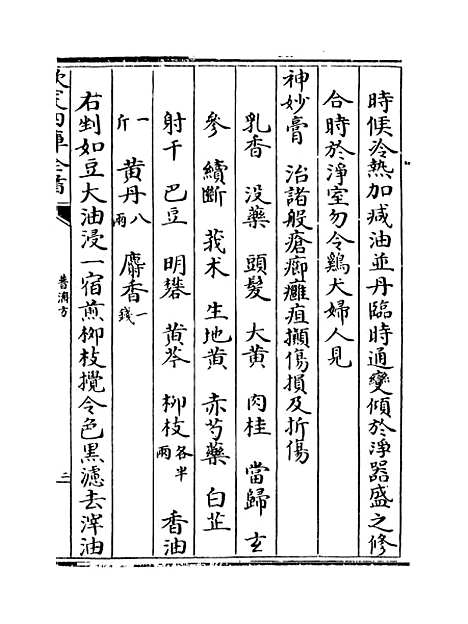 時候冷熱加减油並丹臨時通變傾於淨器盛之修
合時於淨室勿令鷄犬婦人見
神妙膏　治諸般瘡癤癰疽攧傷損及折傷
乳香　没藥　頭髮　大黄　肉桂　當歸　玄
參　續斷　莪术　生地黄　赤芍藥　白芷
射干　巴豆　明礬　黄芩　柳枝各半兩　香油
一斤　黄丹八兩　麝香一錢
右剉如豆大油浸一宿煎柳枝攪令色黒濾去滓油
欽定四庫全書
普濟方
三